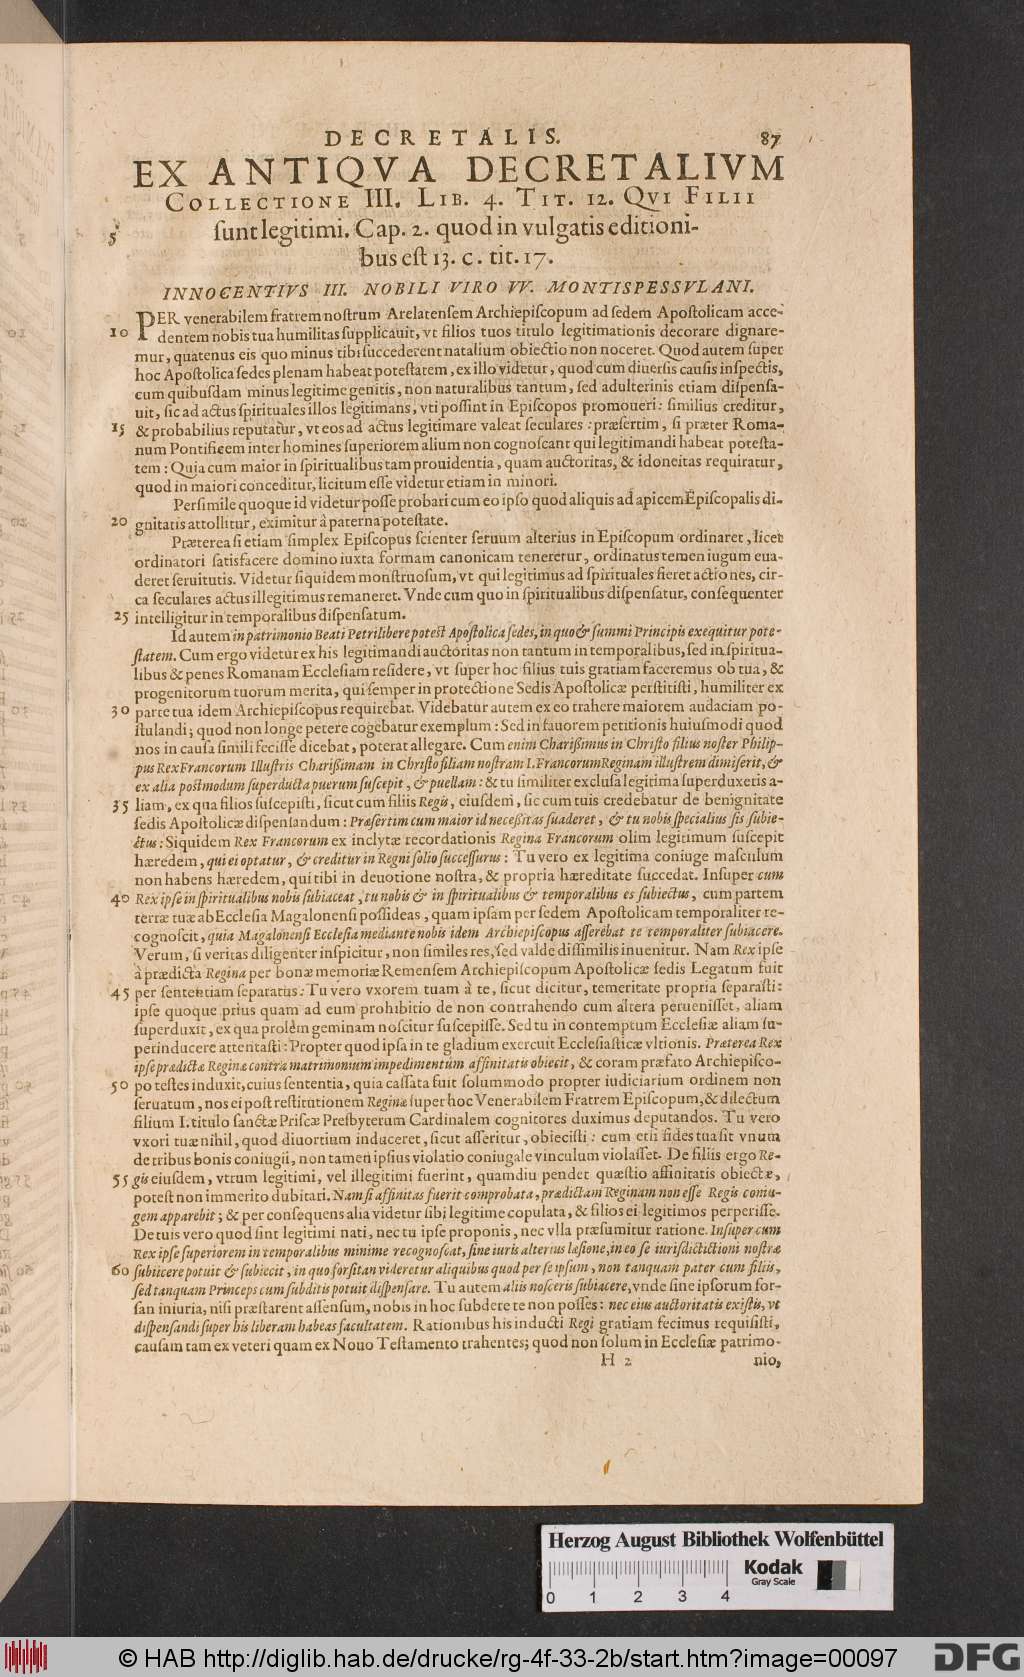 DECRETALIS. 87
EX ANTIQVA DECRETALIVM
COLLECTIONE III. LIB. 4. TIT. 12. QVI FILII
5 ſunt legitimi. Cap. 2. quod in vulgatis editioni-
bus eſt 13. c. tit. 17.
INNOCENTIVS III. NOBILI VIRO VV. MONTISPESSVLANI.
PER venerabilem fratrem noſtrum Arelatenſem Archiepiſcopum ad ſedem Apoſtolicam acce-
10 dentem nobis tua humilitas ſupplicauit, vt filios tuos titulo legitimationis decorare dignare-
mur, quatenus eis quo minus tibi ſuccederent natalium obiectio non noceret. Quod autem ſuper
hoc Apoſtolica ſedes plenam habeat poteſtatem, ex illo videtur, quod cum diuerſis cauſis inſpectis,
cum quibuſdam minus legitime genitis, non naturalibus tantum, ſed adulterinis etiam diſpenſa-
uit, ſic ad actus ſpirituales illos legitimans, vti poſſint in Epiſcopos promoueri: ſimilius creditur,
15 & probabilius reputatur, vt eos ad actus legitimare valeat ſeculares: præſertim, ſi præter Roma-
num Pontificem inter homines ſuperiorem alium non cognoſcant qui legitimandi habeat poteſta-
tem: Quia cum maior in ſpiritualibus tam prouidentia, quam auctoritas, & idoneitas requiratur,
quod in maiori conceditur, licitum eſſe videtur etiam in minori.
Perſimile quoque id videtur poſſe probari cum eo ipſo quod aliquis ad apicem Epiſcopalis di-
20 gnitatis attollitur, eximitur à paterna poteſtate.
Præterea ſi etiam ſimplex Epiſcopus ſcienter ſeruum alterius in Epiſcopum ordinaret, licet
ordinatori ſatisfacere domino iuxta formam canonicam teneretur, ordinatus temen iugum eua-
deret ſeruitutis. Videtur ſiquidem monſtruoſum, vt qui legitimus ad ſpirituales fieret actiones, cir-
ca ſeculares actus illegitimus remaneret. Vnde cum quo in ſpiritualibus diſpenſatur, conſequenter
25 intelligitur in temporalibus diſpenſatum.
Id autem in patrimonio Beati Petri libere poteſt Apoſtolica ſedes, in quo & ſummi Principis exequitur pote-
ſtatem. Cum ergo videtur ex his legitimandi auctoritas non tantum in temporalibus, ſed in ſpiritua-
libus & penes Romanam Eccleſiam reſidere, vt ſuper hoc filius tuis gratiam faceremus ob tua, &
progenitorum tuorum merita, qui ſemper in protectione Sedis Apoſtolicæ perſtitiſti, humiliter ex
30 parte tua idem Archiepiſcopus requirebat. Videbatur autem ex eo trahere maiorem audaciam po-
ſtulandi; quod non longe petere cogebatur exemplum: Sed in fauorem petitionis huiuſmodi quod
nos in cauſa ſimili feciſſe dicebat, poterat allegare. Cum enim Chariſsimus in Chriſto filius noſter Philip-
pus Rex Francorum Illuſtris Chariſsimam in Chriſto filiam noſtram I. Francorum Reginam illuſtrem dimiſerit, &
ex alia poſtmodum ſuperducta puerum ſuſcepit, & puellam: & tu ſimiliter excluſa legitima ſuperduxeris a-
35 liam, ex qua filios ſuſcepiſti, ſicut cum filiis Regis, eiuſdem, ſic cum tuis credebatur de benignitate
ſedis Apoſtolicæ diſpenſandum: Præſertim cum maior id neceſsitas ſuaderet, & tu nobis ſpecialius ſis ſubie-
ctus: Siquidem Rex Francorum ex inclytæ recordationis Regina Francorum olim legitimum ſuſcepit
hæredem, qui ei optatur, & creditur in Regni ſolio ſucceſſurus: Tu vero ex legitima coniuge maſculum
non habens hæredem, qui tibi in deuotione noſtra, & propria hæreditate ſuccedat. Inſuper cum
40 Rex ipſe in ſpiritualibus nobis ſubiaceat, tu nobis & in ſpiritualibus & temporalibus es ſubiectus, cum partem
terræ tuæ ab Eccleſia Magalonenſi poſſideas, quam ipſam per ſedem Apoſtolicam temporaliter re-
cognoſcit, quia Magalonenſi Eccleſia mediante nobis idem Archiepiſcopus aſſerebat te temporaliter ſubiacere.
Verum, ſi veritas diligenter inſpicitur, non ſimiles res, ſed valde diſſimilis inuenitur. Nam Rex ipſe
à prædicta Regina per bonæ memoriæ Remenſem Archiepiſcopum Apoſtolicæ ſedis Legatum fuit
45 per ſententiam ſeparatus: Tu vero vxorem tuam à te, ſicut dicitur, temeritate propria ſeparaſti:
ipſe quoque prius quam ad eum prohibitio de non contrahendo cum altera perueniſſet, aliam
ſuperduxit, ex qua prolem geminam noſcitur ſuſcepiſſe. Sed tu in contemptum Eccleſiæ aliam ſu-
perinducere attentaſti: Propter quod ipſa in te gladium exercuit Eccleſiaſticæ vltionis. Præterea Rex
ipſe prædictæ Reginæ contra matrimonium impedimentum affinitatis obiecit, & coram præfato Archiepiſco-
50 po teſtes induxit, cuius ſententia, quia caſſata fuit ſolummodo propter iudiciarium ordinem non
ſeruatum, nos ei poſt reſtitutionem Reginæ ſuper hoc Venerabilem Fratrem Epiſcopum, & dilectum
filium I. titulo ſanctæ Priſcæ Presbyterum Cardinalem cognitores duximus deputandos. Tu vero
vxori tuæ nihil, quod diuortium induceret, ſicut aſſeritur, obieciſti: cum etſi fides tua ſit vnum
de tribus bonis coniugii, non tamen ipſius violatio coniugale vinculum violaſſet. De filiis ergo Re-
55 gis eiuſdem, vtrum legitimi, vel illegitimi fuerint, quamdiu pendet quæſtio affinitatis obiectæ,
poteſt non immerito dubitari. Nam ſi affinitas fuerit comprobata, prædictam Reginam non eſſe Regis coniu-
gem apparebit; & per conſequens alia videtur ſibi legitime copulata, & filios ei legitimos perperiſſe.
De tuis vero quod ſint legitimi nati, nec tu ipſe proponis, nec vlla præſumitur ratione. Inſuper cum
Rex ipſe ſuperiorem in temporalibus minime recognoſcat, ſine iuris alterius læſione, in eo ſe iurisdictictioni noſtræ
60 ſubiicere potuit & ſubiecit, in quo forſitan videretur aliquibus quod per ſe ipſum, non tanquam pater cum filiis,
ſed tanquam Princeps cum ſubditis potuit diſpenſare. Tu autem aliis noſceris ſubiacere, vnde ſine ipſorum for-
ſan iniuria, niſi præſtarent aſſenſum, nobis in hoc ſubdere te non poſſes: nec eius auctoritatis exiſtis, vt
diſpenſandi ſuper his liberam habeas facultatem. Rationibus his inducti Regi gratiam fecimus requiſiſti,
cauſam tam ex veteri quam ex Nouo Teſtamento trahentes; quod non ſolum in Eccleſiæ patrimo-
H 2 nio,
Herzog August Bibliothek Wolfenbüttel
Kodak
Gray Scale
0 1 2 3 4
© HAB http://diglib.hab.de/drucke/rg-4f-33-2b/start.htm?image=00097
DFG